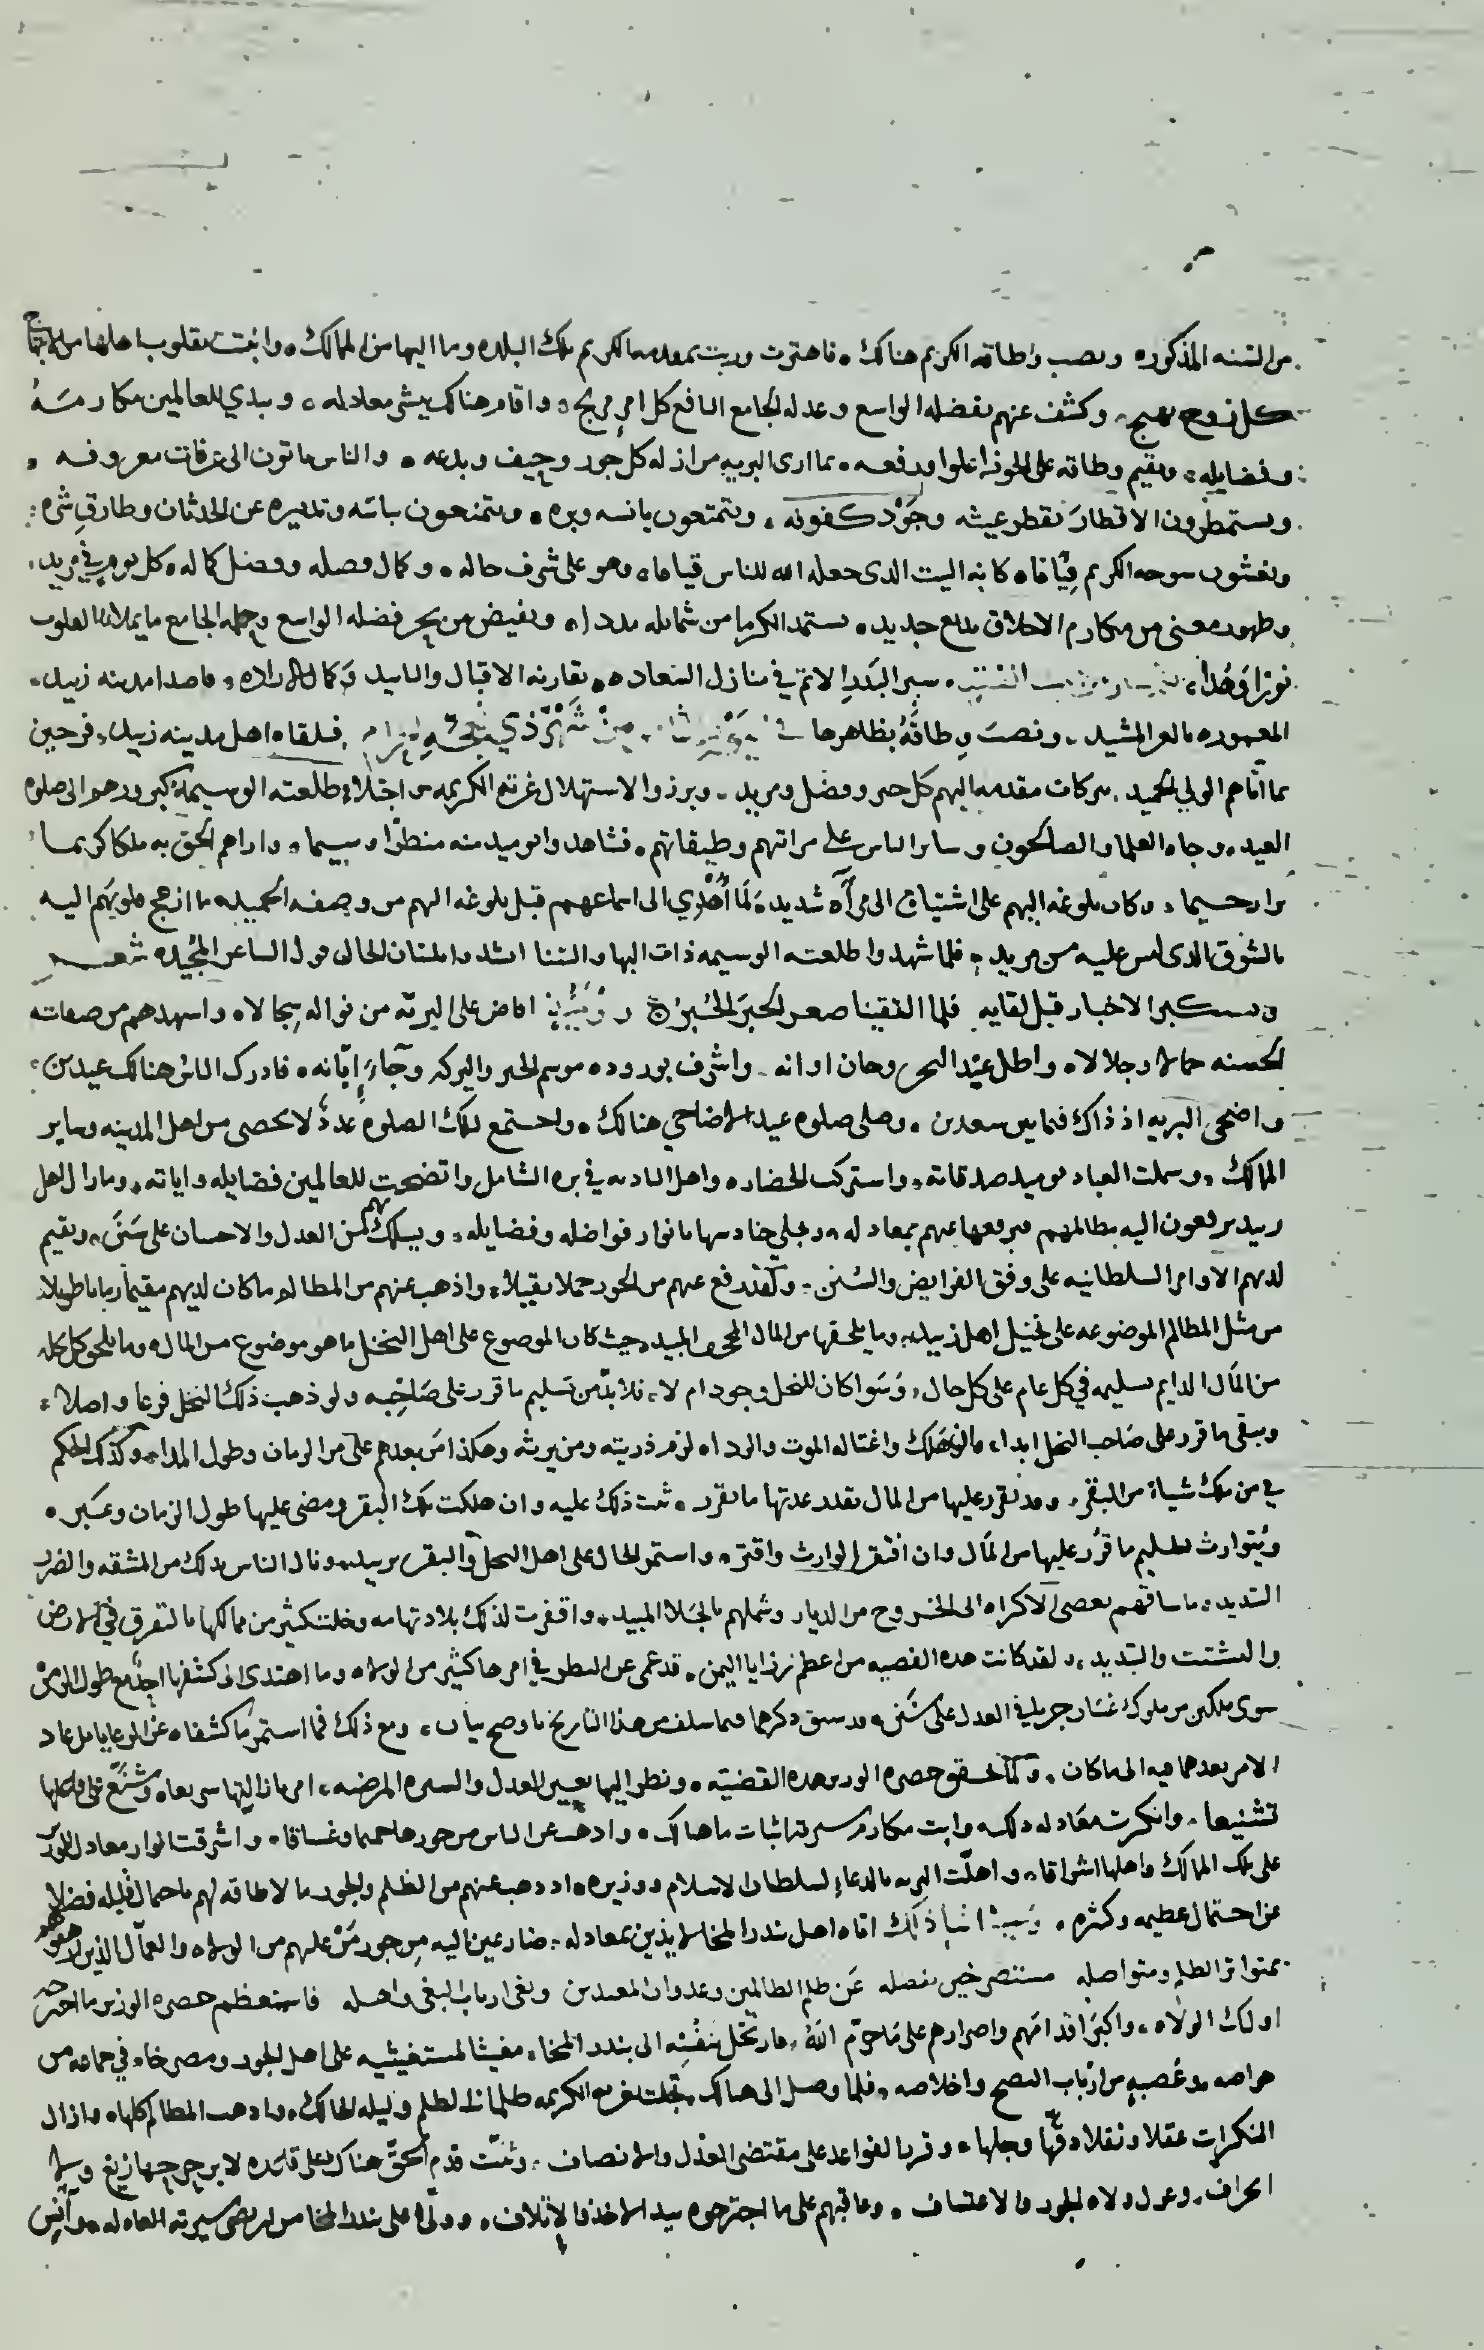 من السنه المذكوره ونصب وطاقه الكريم هناك فاهتزت وربت بمقدمه الكريم تلك البلده وما اليها من الممالك وانبتت بقلوب اهلها من الابتهاج
كل زوج بهيج وكشف عنهم بفضله الواسع وعدله الجامع النافع كل امر مريج واقام هناك ينشر معادله ويبدي للعالمين مكارمه
وفضايله ويقيم وطاقه على الجوزا علوا ورفعه بما ارى البريه من ازاله كل جور وحيف وبدعه والناس ياتون الى عرفات معروفه
ويستمطرون الاقطار بقطر عيشه وجود كفوفه ويتمتعون بانسه وبره ويتمنعون بباسه وتدبيره عن الحدثان وطارق شره
ويغشون سوحه الكريم فياما كانه البيت الذى جعله الله للناس قياما وهو على شرف حاله وكمال فضله وفضل كماله كل يوم في مزيد
وظهور معنى من مكارم الاخلاق بديع جديد يستمد الكرما من شمايله مددا ويفيض من بحر فضله الواسع وحلمه الجامع ما يملا القلوب
نورا وهدا سير البدر الاتم في منازل السعاده يقارنه الاقبال والتاييد وكمال الاراده قاصدا مدينه زبيد
المعموره بالعز المشيد ونصب وطاقه بظاهرها في من شهر ذي حجه الحرام فتلقاه اهل مدينه زبيد فرحين
بما اتاهم الولي الحميد ببركات مقدمه اليهم كل خير وفضل ومزيد وبرزوا لاستهلال غرته الكريمه واجتلاء طلعته الوسيمه كبروزهم الى صلوه
العيد وجاه العلما والصالحون وساير الناس على مراتبهم وطبقاتهم فشاهدوا يوميد منه منظرا وسيما واراهم الحق به ملكا كريما
برا رحيما وكان بلوغه اليهم على اشتياق الى مرآه شديد لما أهدي الى اسماعهم قبل بلوغه اليهم من وصفه الجميل ما ازعج قلوبهم اليه
بالشوق الذى ليس عليه من مزيد فلما شهدوا طلعته الوسيمه ذات البها والسنا انشدوا بلسان الحال قول الشاعر المجيد شعر
ونستكبر الاخبار قبل لقايه فلما التقينا صغر الخبر الخبر افاض على البريه من نواله سجالا واشهدهم من صفاته
الحسنه جمالا وجلالا واطل عيد النحر وحان اوانه واشرف بوروده موسم الخير والبركه وجاء إبانه فادرك الناس هنالك عيدين
واضحى البريه اذ ذاك فيما بين سعدين وصلى صلوه عيد الاضاحي هنالك واجتمع لتلك الصلوه عدد لا يحصى من اهل المدينه وساير
الممالك وشملت العباد يوميد صدقاته واشترك الحضار واهل الباديه في بره الشامل واتضحت للعالمين فضايله واياته وما زال اهل
زبيد يرفعون اليه مظالمهم فيرفعها عنهم بمعادله ويجلي حنادسها بانوار فواضله وفضايله ويسلك بهم من العدل والاحسان على سنن ويقيم
لديهم الاوامر السلطانيه على وفق الفرايض والسنن ولقد دفع عنهم من الجور حملا ثقيلا واذهب عنهم من المظالم ما كان لديهم مقيما زمانا طويلا
من مثل المظالم الموضوعه على نخيل اهل زبيد وما يلحقها من المال المجحف المبيد حيث كان الموضوع على اهل النخل ما هو موضوع من المال وما يلحق كل نخله
من المال الدايم تسليمه في كل عام على كل حال وسوا كان للنخل وجود ام لا فلا بد من تسليم ما قرر على صاحبه ولو ذهب ذلك النخل فرعا واصلا
ويبقى ما قرر على صاحب النخل ابدا فان هلك واغتاله الموت والردا لزم ذريته ومن يرثه وهكذا من بعدهم على مر الزمان وطول المدا وكذلك الحكم
في من ملك شياة من البقر وقد تقرر عليها من المال بقدر عدتها ما تقرر ثبت ذلك عليه وان هلكت تلك البقر ومضى عليها طول الزمان وعبر
ويتوارث تسليم ما قرر عليها من المال وان افتقر الوارث واقتر واستمر الحال على اهل النخل والبقر بزبيد ونال الناس بذلك من المشقه والضر
الشديد ما ساقهم بعصى الاكراه الى الخروج من الديار وشملهم بالجلا المبيد واقفرت لذلك بلاد تهامه وخلت كثير من ممالكها بالتفرق في الارض
والتشتت والتبديد ولقد كانت هذه القضيه من اعظم رزايا اليمن قد عمى عن النظر في امرها كثير من الولاه وما اهتدى الى كشفها احد مع طول الزمن
سوى ملكين من ملوك غسان جريا في العدل على سنن وقد سبق ذكرهما فيما سلف من هذا التاريخ باوضح بيان ومع ذلك فما استمر ما كشفاه عن الرعايا بل عاد
الامر بعدهما فيه الى ما كان ولما تحقق حضره الوزير هذه القضيه ونظر اليها بعين العدل والسيره المرضيه امر بازالتها سريعا وشنع على فاعلها
تشنيعا وانكرت معادله ذلك وابت مكارم سيرته اثبات ما هناك واذهب عن الناس من جورها حميما وغساقا واشرقت انوار معادل الوزير
على تلك الممالك واهلها اشراقا واهلت البريه بالدعاء لسلطان الاسلام ووزيره اذ ذهب عنهم من الظلم والجور ما لا طاقه لهم باحتمال قليله فضلا
عن احتمال عظيمه وكثيره اثنا ذلك اتاه اهل بندر المخا لايذين بمعادله ضارعين اليه من جور من عليهم من الولاه والعمال الذين
بمتواتر الظلم ومتواصله مستنصرخين بفضله عن ظلم الظالمين وعدوان المعتدين وبغى ارباب البغى واهله فاستعظم حضره الوزير ما اجترحه
اولئك الولاه واكبر اقدامهم واصرارهم على ما حرم الله فارتحل بنفسه الى بندر المخا مغيثا لمستغيثيه على اهل الجور ومصرخا في جماعه من
خواصه وعصبه من ارباب النصح واخلاصه فلما وصل الى هناك تجلت بغرته الكريمه ظلمات الظلم وليله الحالك واذهب المظالم كلها وازال
المنكرات عقلا ونقلا دقها وجلها وقرر القواعد على مقتضى العدل والانصاف وثبت قدم الحق هناك على قاعده لا يرجى جهازيغ ولا
انحراف وعزل ولاه الجور والاعتساف وعاقبهم على ما اجترحوه بيد الاخذ والإتلاف وولى على بندر المخا من ارتضى سيرته العادله وأنس